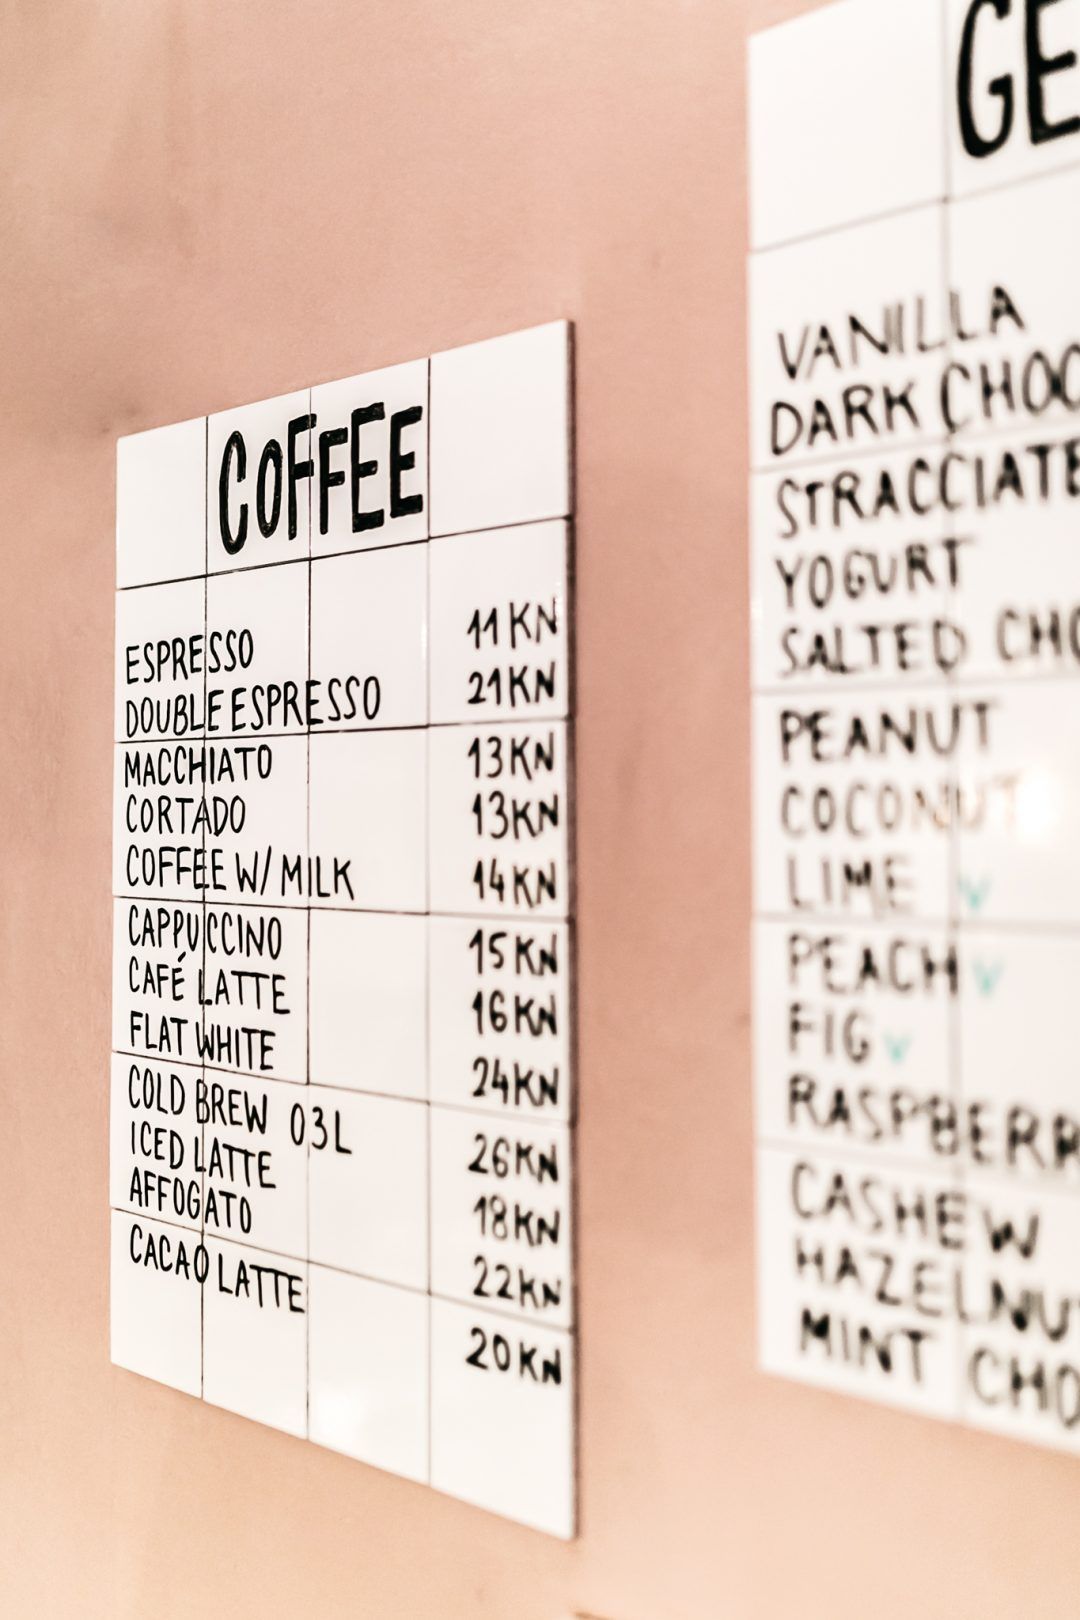 COFFEE
ESPRESSO 11 KN
DOUBLE ESPRESSO 21 KN
MACCHIATO 13 KN
CORTADO 13 KN
COFFEE W/ MILK 14 KN
CAPPUCCINO 15 KN
CAFÉ LATTE 16 KN
FLAT WHITE 24 KN
COLD BREW 03L 26 KN
ICED LATTE 18 KN
AFFOGATO 22 KN
CACAO LATTE 20 KN
GE
VANILLA
DARK CHOC
STRACCIATE
YOGURT
SALTED CHO
PEANUT
COCONUT
LIME V
PEACH V
FIG V
RASPBERR
CASHEW
HAZELNU
MINT CHO